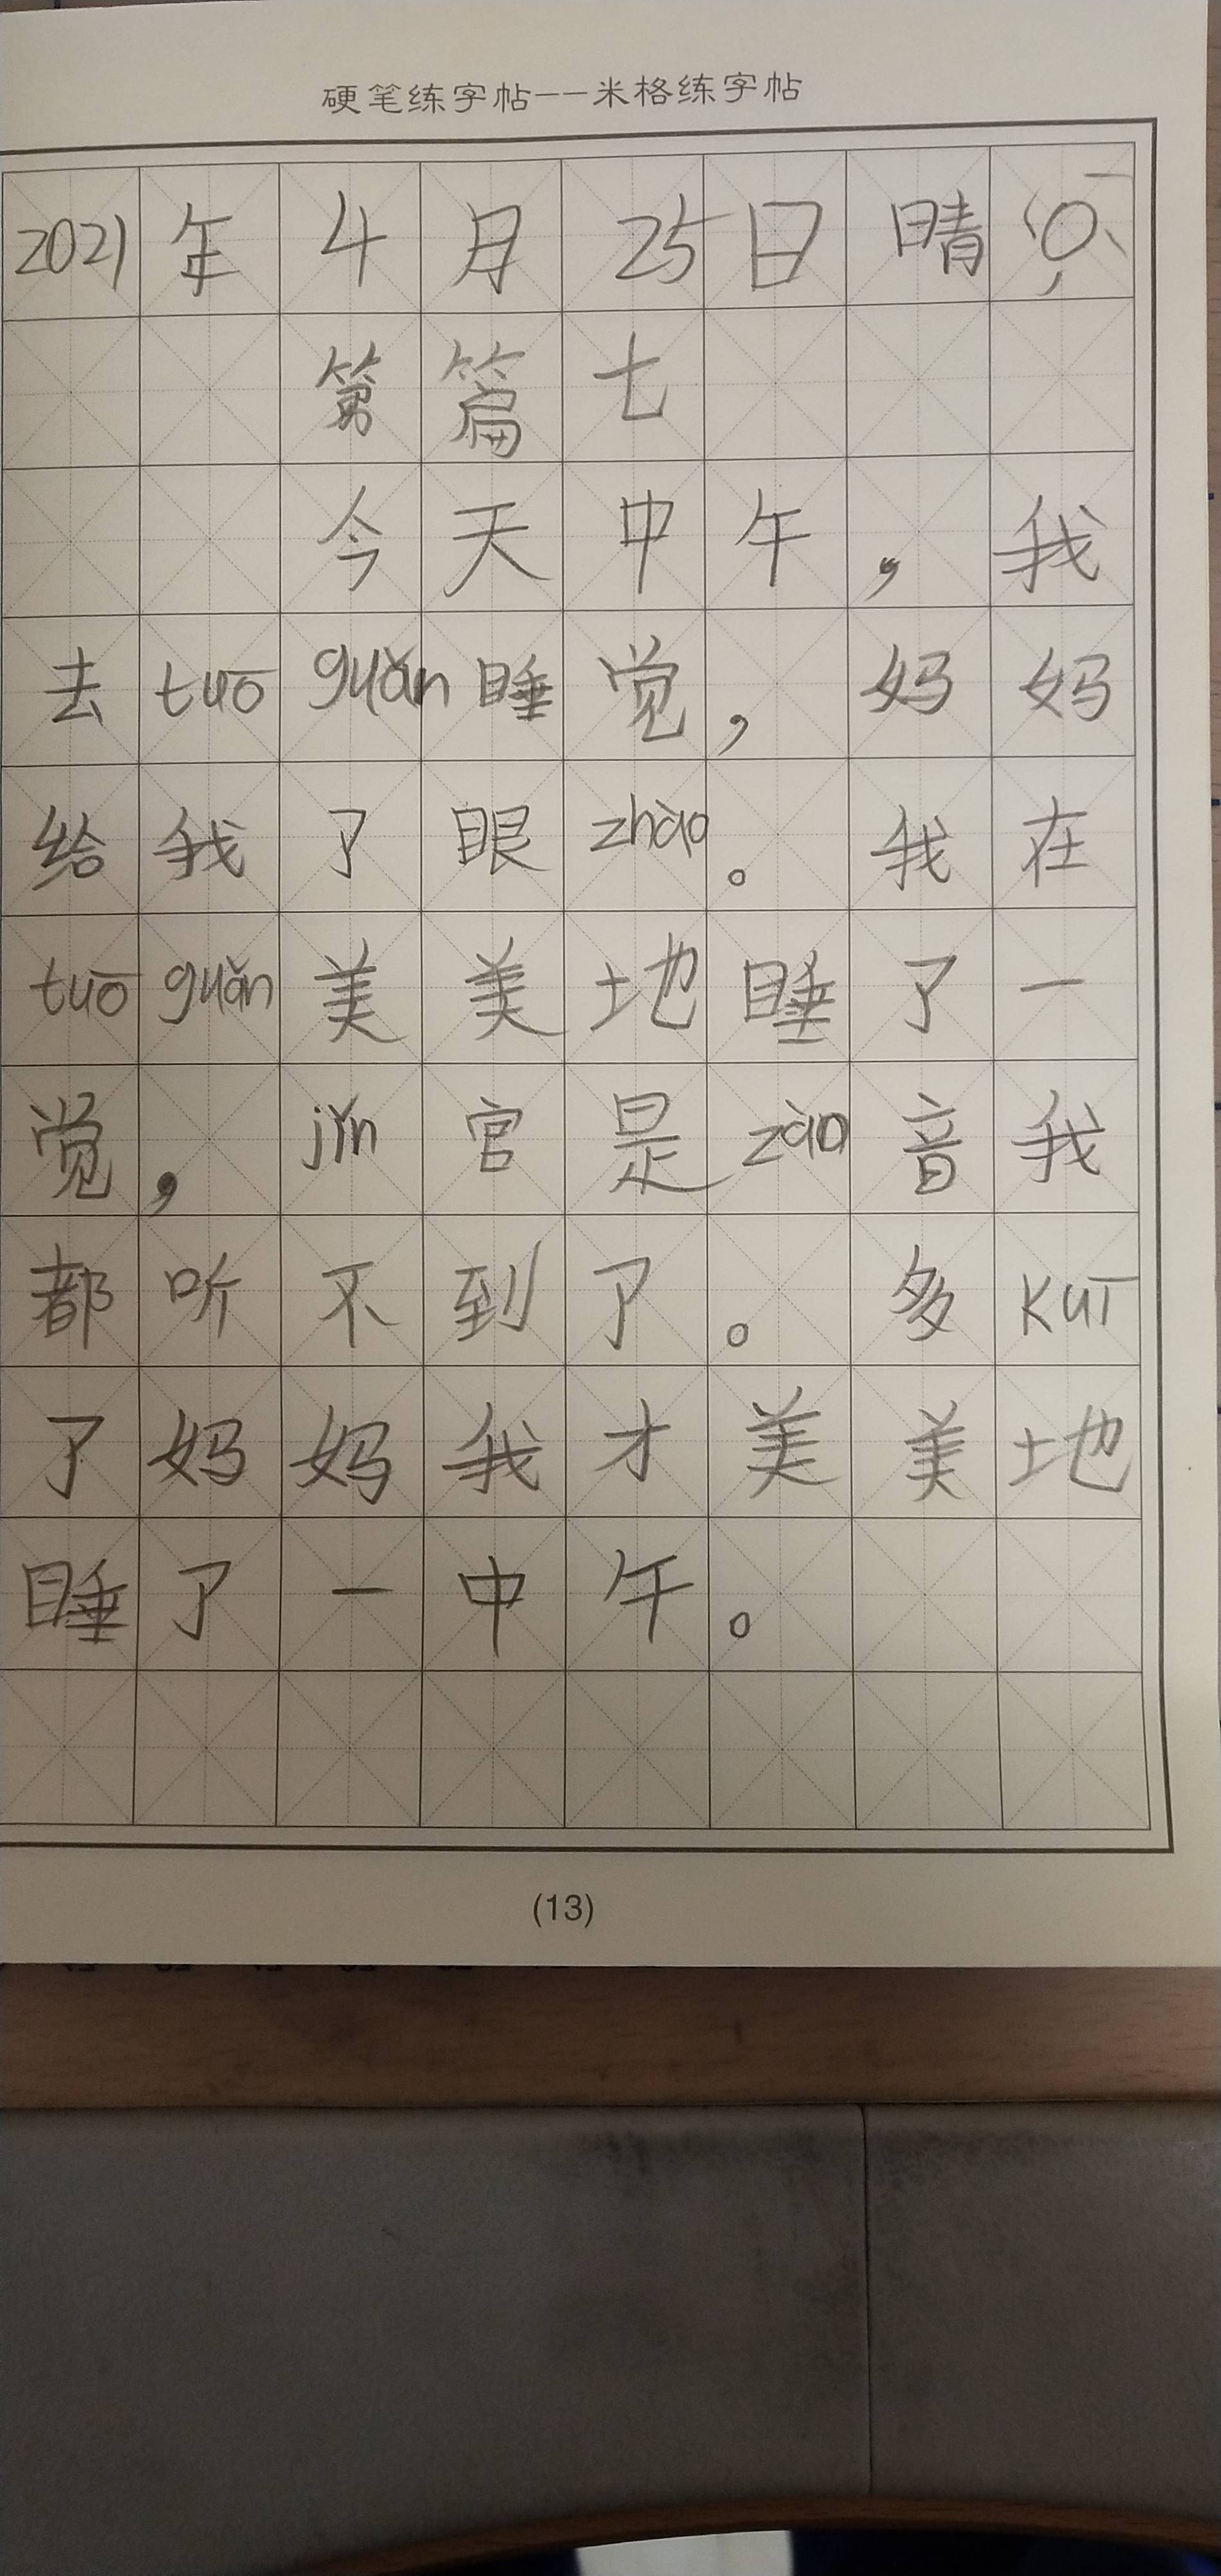 硬笔练字帖--米格练字帖
2021年4月25日晴
第篇七
今天中午，我
去tuō guǎn睡觉，妈妈
给我了眼zhào。我在
tuō guǎn美美地睡了一
觉，jǐn官是zào音我
都听不到了。多kuī
了妈妈我才美美地
睡了一中午。
(13)